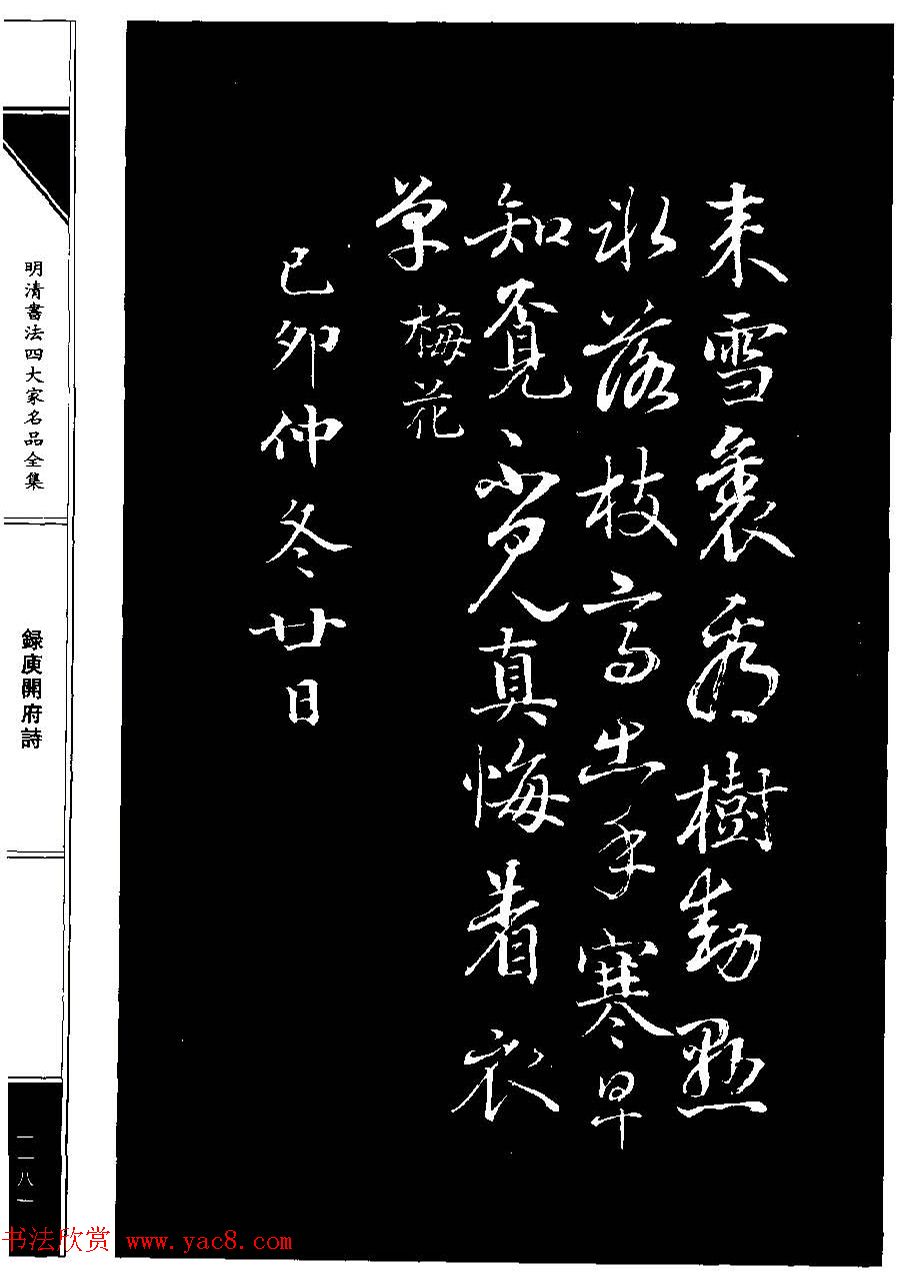 来雪裏看樹動懸
氷落枝高出手寒早
知覓不見真悔着衣
單 梅花
己卯仲冬廿日
明清書法四大家名品全集
録庾開府詩
一一八一
书法欣赏 www.yac8.com